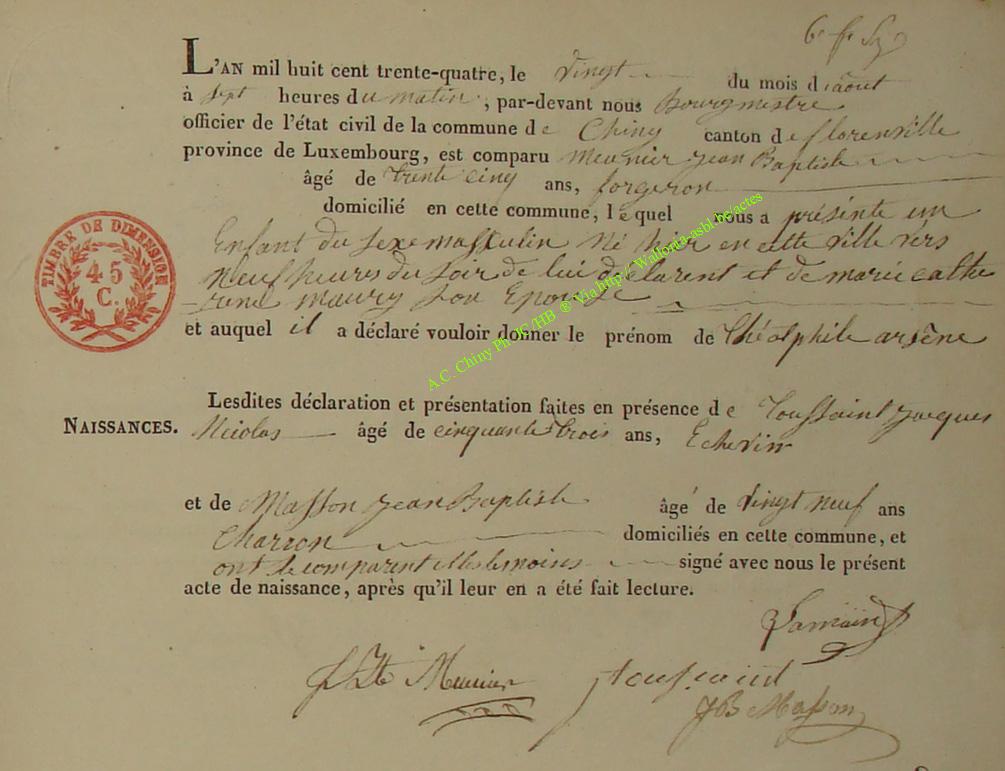 L'AN mil huit cent trente-quatre, le vingt du mois d'août
à sept heures du matin, par-devant nous Bourgmestre
officier de l'état civil de la commune de Chiny canton de florenville
province de Luxembourg, est comparu Meunier jean Baptiste
âgé de trente cinq ans, forgeron
domicilié en cette commune, lequel nous a présenté un
Enfant du sexe masculin Né hier en cette ville vers
Neuf heures du soir de lui déclarent et de marie cathe
rine maury son Epouse
et auquel il a déclaré vouloir donner le prénom de Théotphile arsène
TIMBRE DE DIMENSION
45
C.
NAISSANCES.
Lesdites déclaration et présentation faites en présence de Toussaint jacques
Nicolas âgé de cinquante trois ans, Echevin
et de Masson jean Baptiste âgé de vingt neuf ans
Charron domiciliés en cette commune, et
ont le comparent et les temoins signé avec nous le présent
acte de naissance, après qu'il leur en a été fait lecture.
Meunier toussaint
JB Masson
A.C. Chiny Ph JC/HB ® Via http://Wallonia-asbl.be/actes